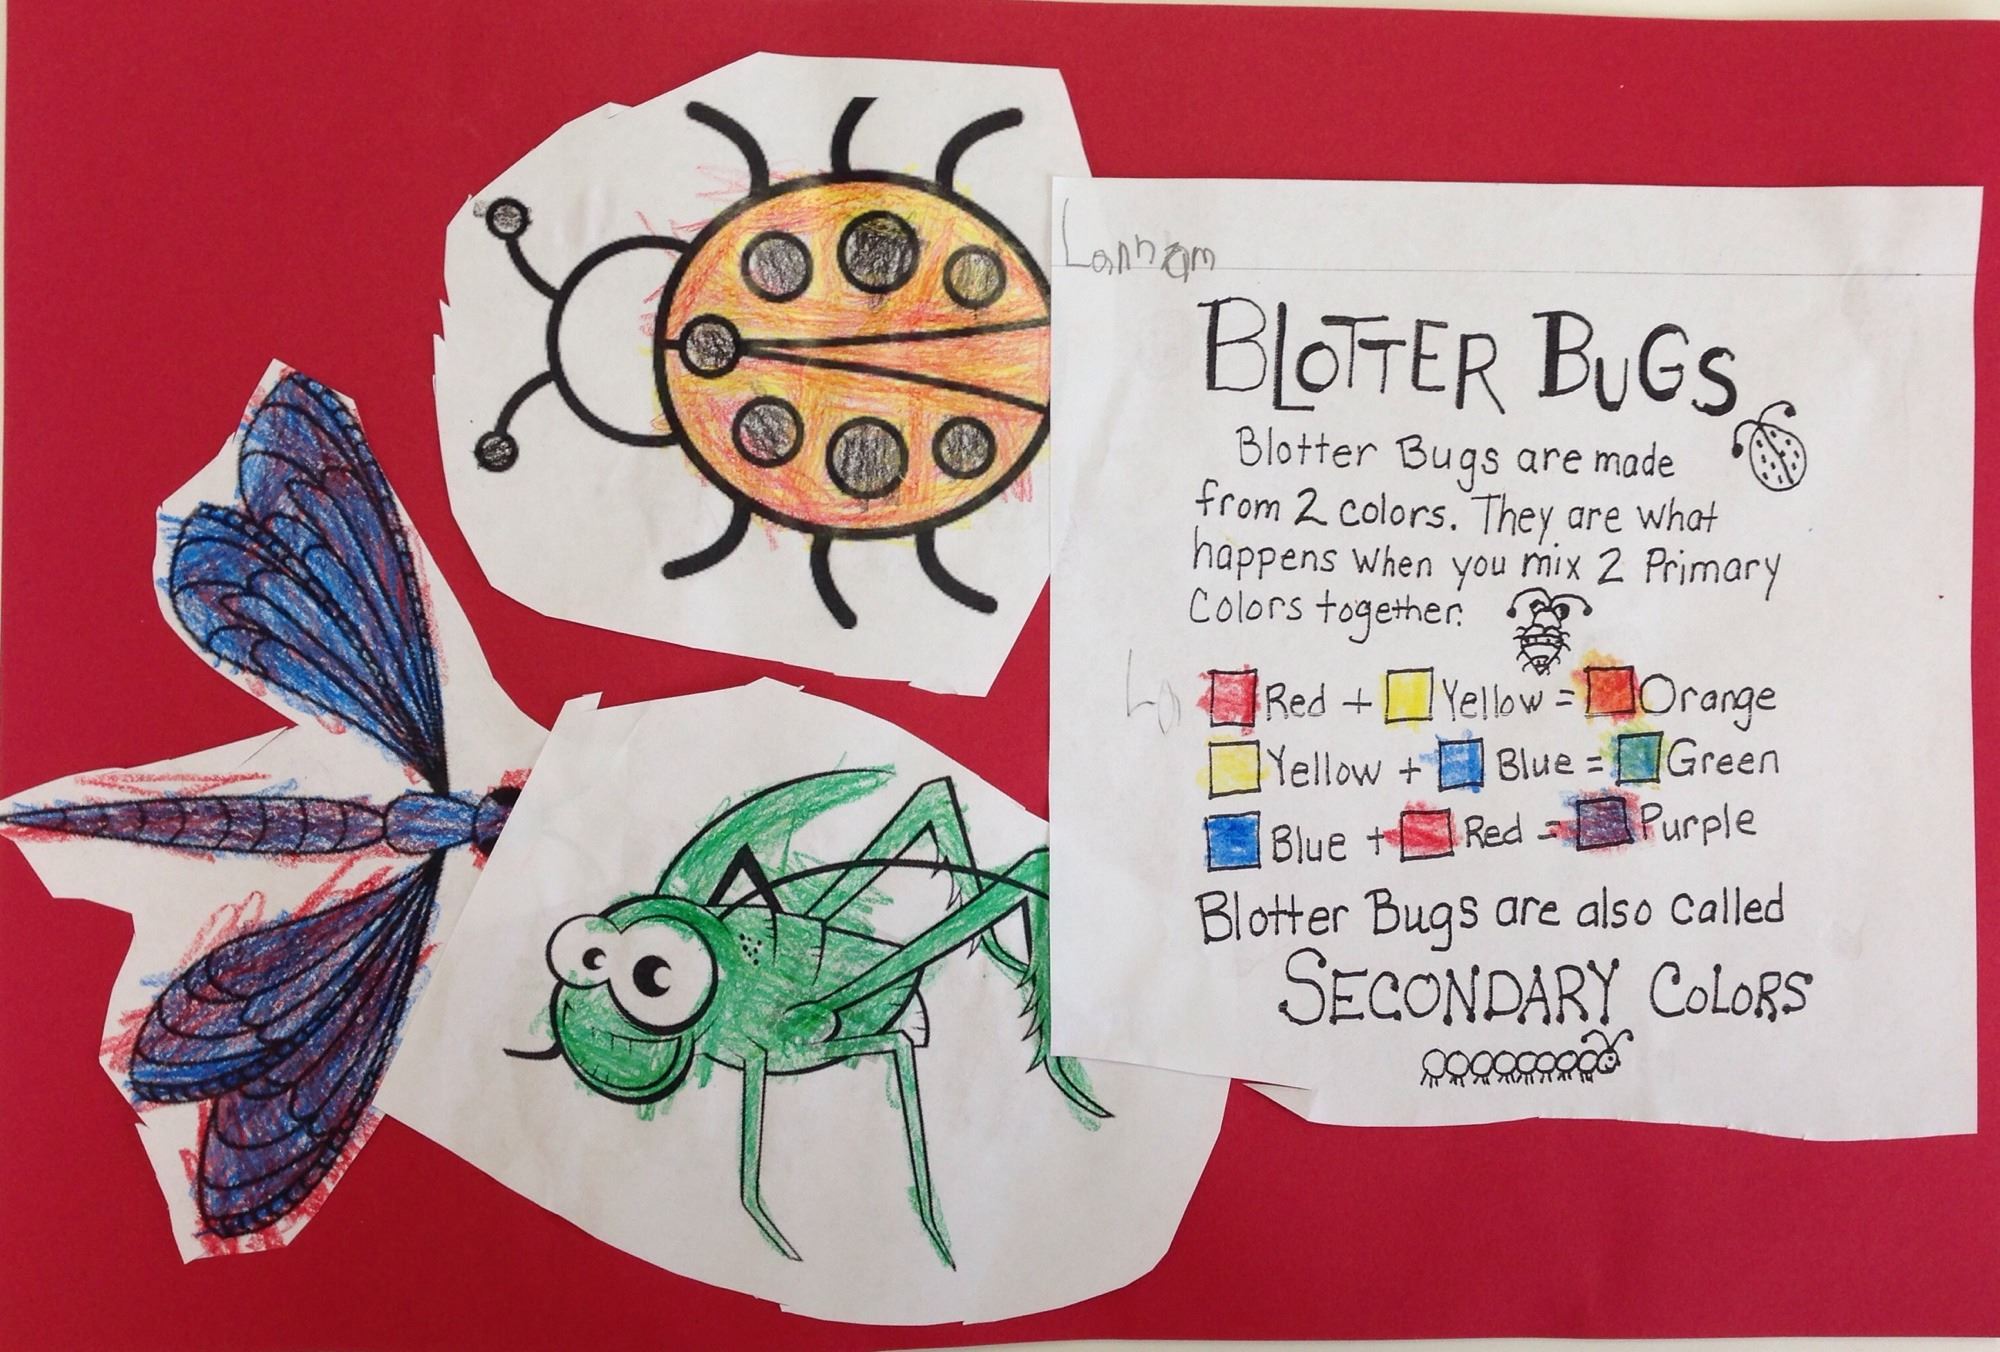 Lannam
BLOTTER BUGS
Blotter Bugs are made
from 2 colors. They are what
happens when you mix 2 Primary
Colors together.
La
Red + Yellow = Orange
Yellow + Blue = Green
Blue + Red = Purple
Blotter Bugs are also called
SECONDARY COLORS